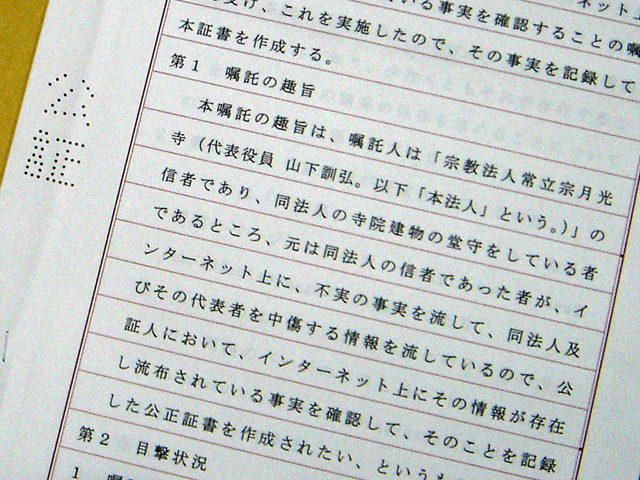 ネット
いる事実を確認することの嘱
受け、これを実施したので、その事実を記録して
本証書を作成する。
第1 嘱託の趣旨
本嘱託の趣旨は、嘱託人は「宗教法人常立宗月光
寺（代表役員 山下訓弘。以下「本法人」という。）」の
信者であり、同法人の寺院建物の堂守をしている者
であるところ、元は同法人の信者であった者が、イ
ンターネット上に、不実の事実を流して、同法人及
びその代表者を中傷する情報を流しているので、公
証人において、インターネット上にその情報が存在
し流布されている事実を確認して、そのことを記録
した公正証書を作成されたい、という
第2 目撃状況
1 嘱
公証